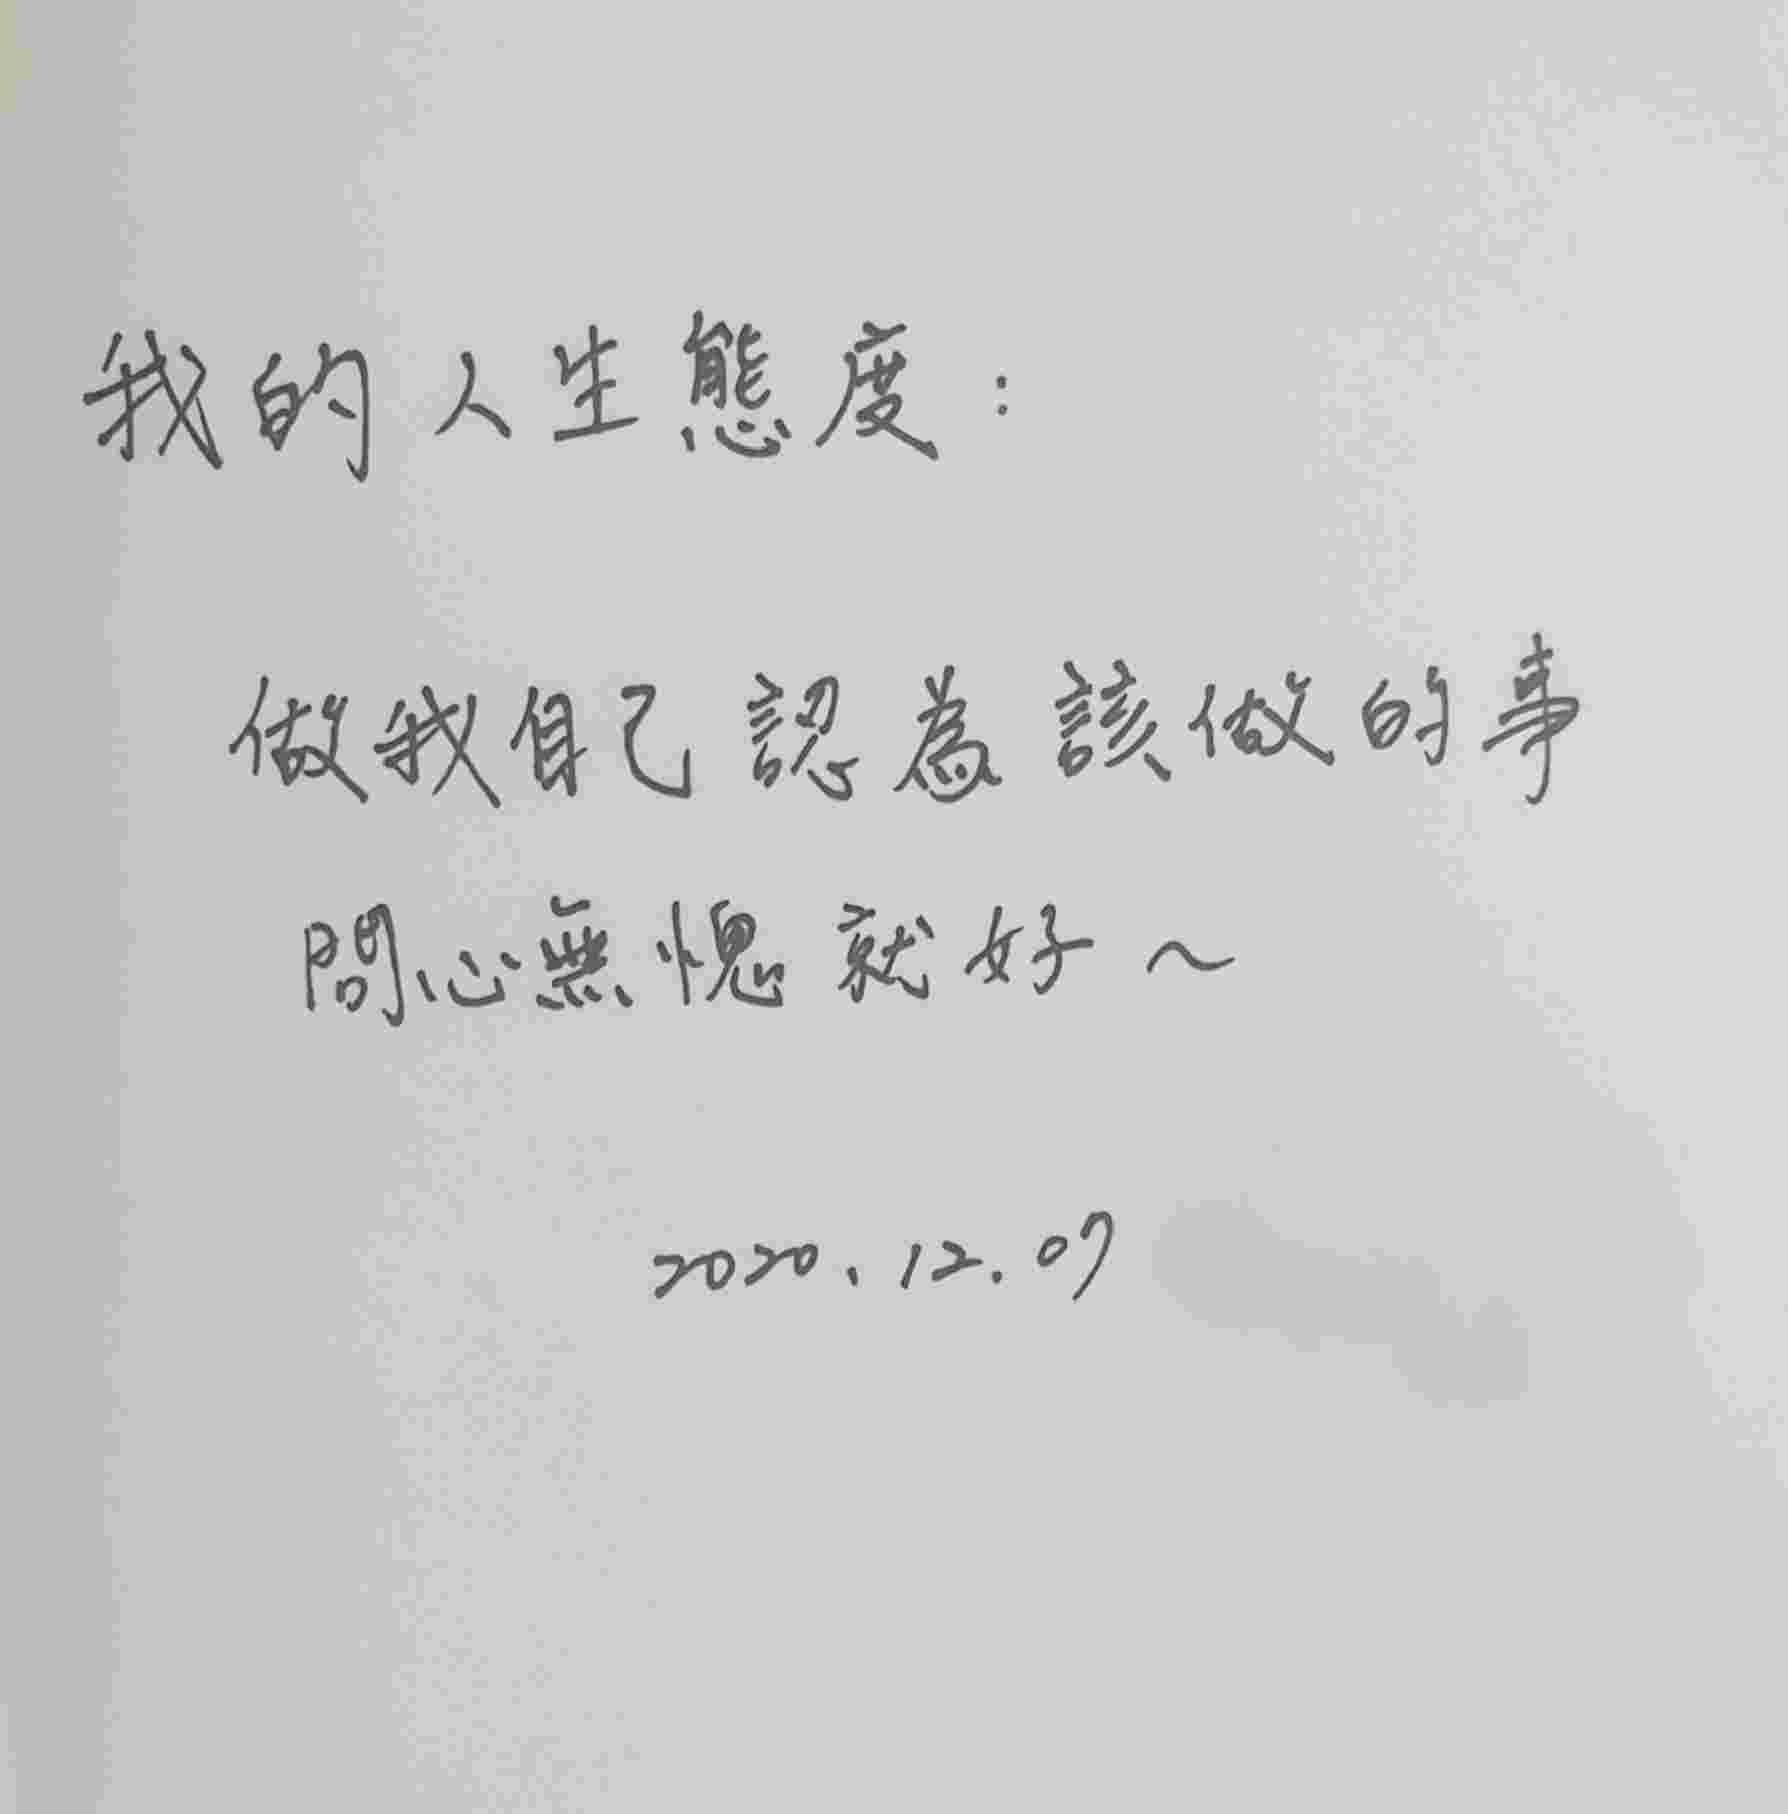 我的人生態度：
做我自己認為該做的事
問心無愧就好～
2020.12.07